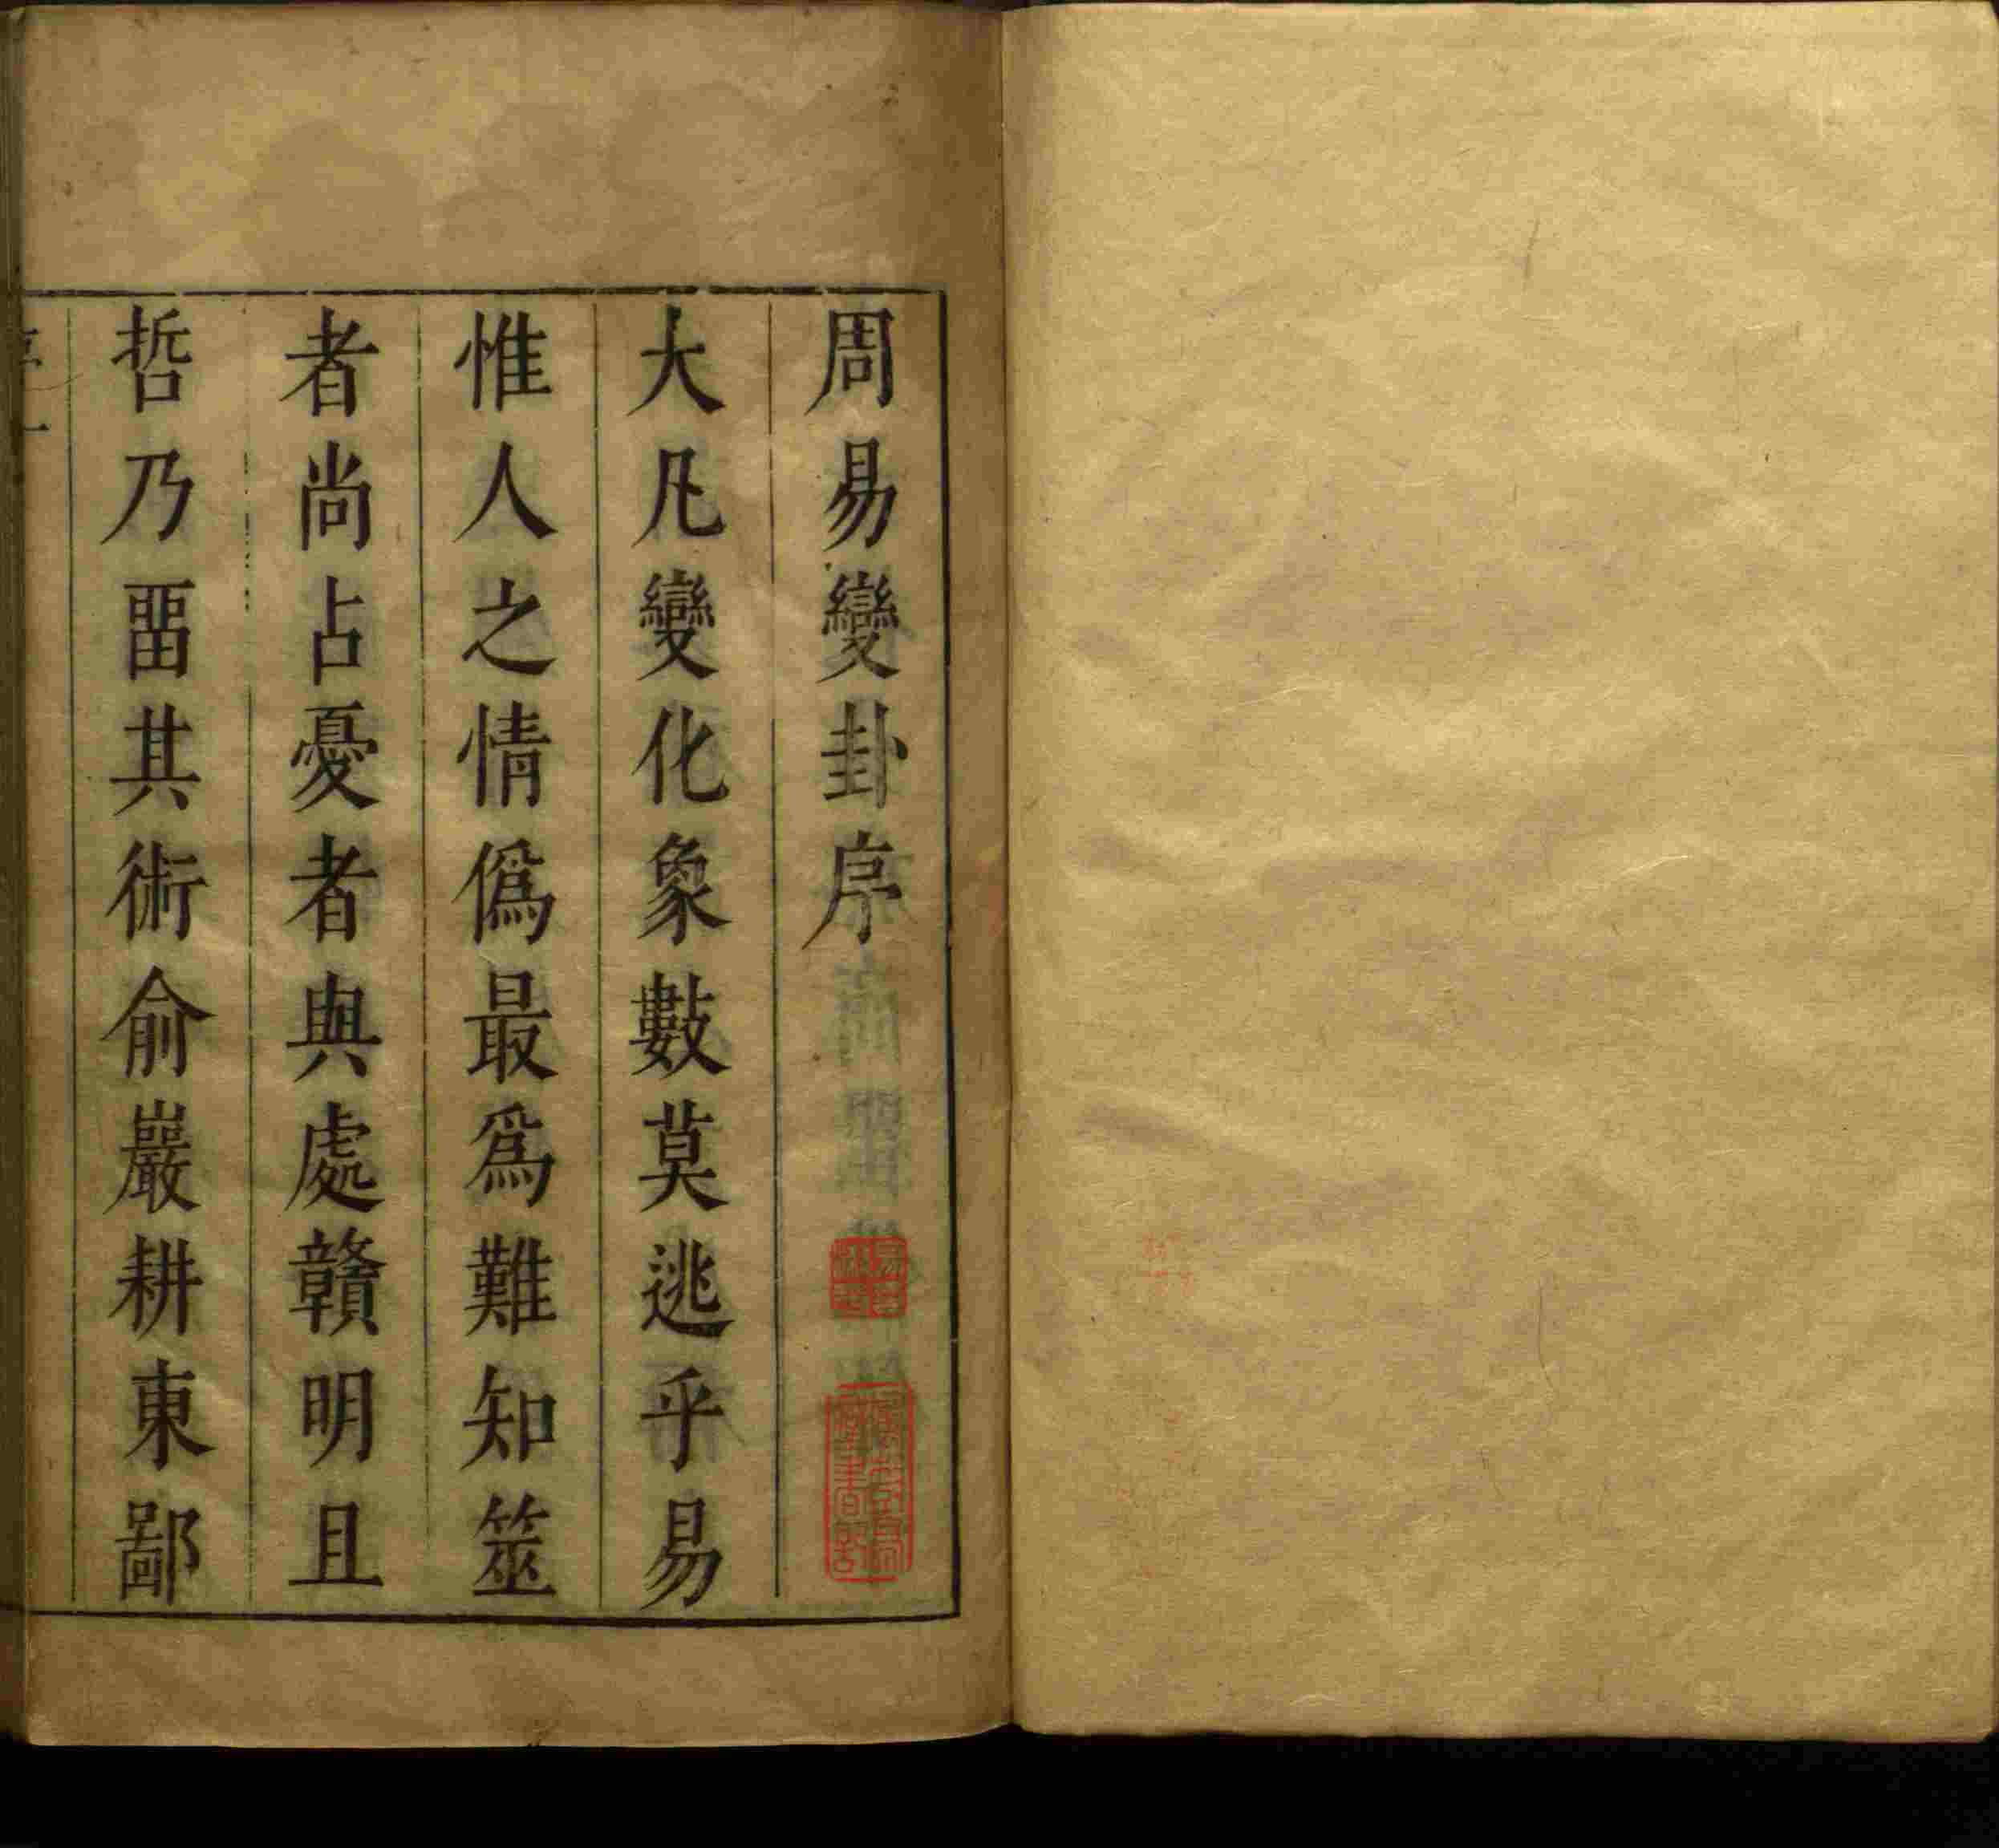 周易變卦序
大凡變化象數莫逃乎易
惟人之情僞最爲難知筮
者尚占憂者與處贛明且
哲乃畱其術俞巖耕東鄙
序一